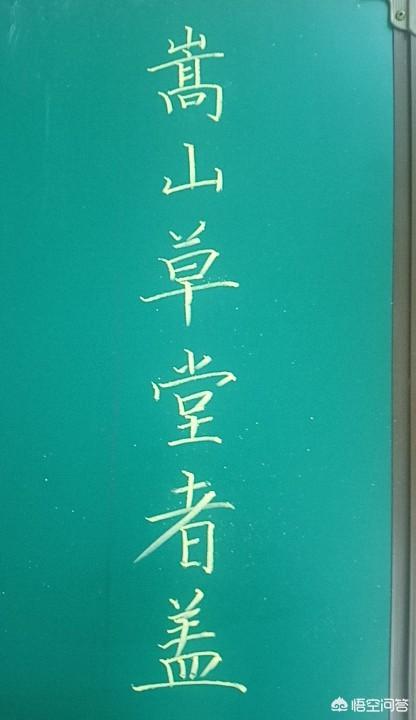 嵩山草堂者盖
悟空问答